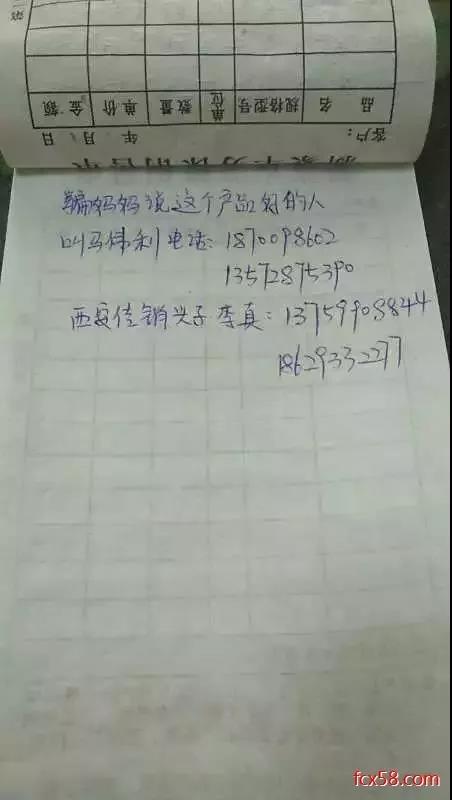 品 名 规格型号 单位 数量 单价 金额
客户: 年 月 日
骗妈妈说这个产品好的人
叫马伟利电话: 1870098602
13572875390
西安传销头子 李真: 13759908844
18629332277
fcx58.com